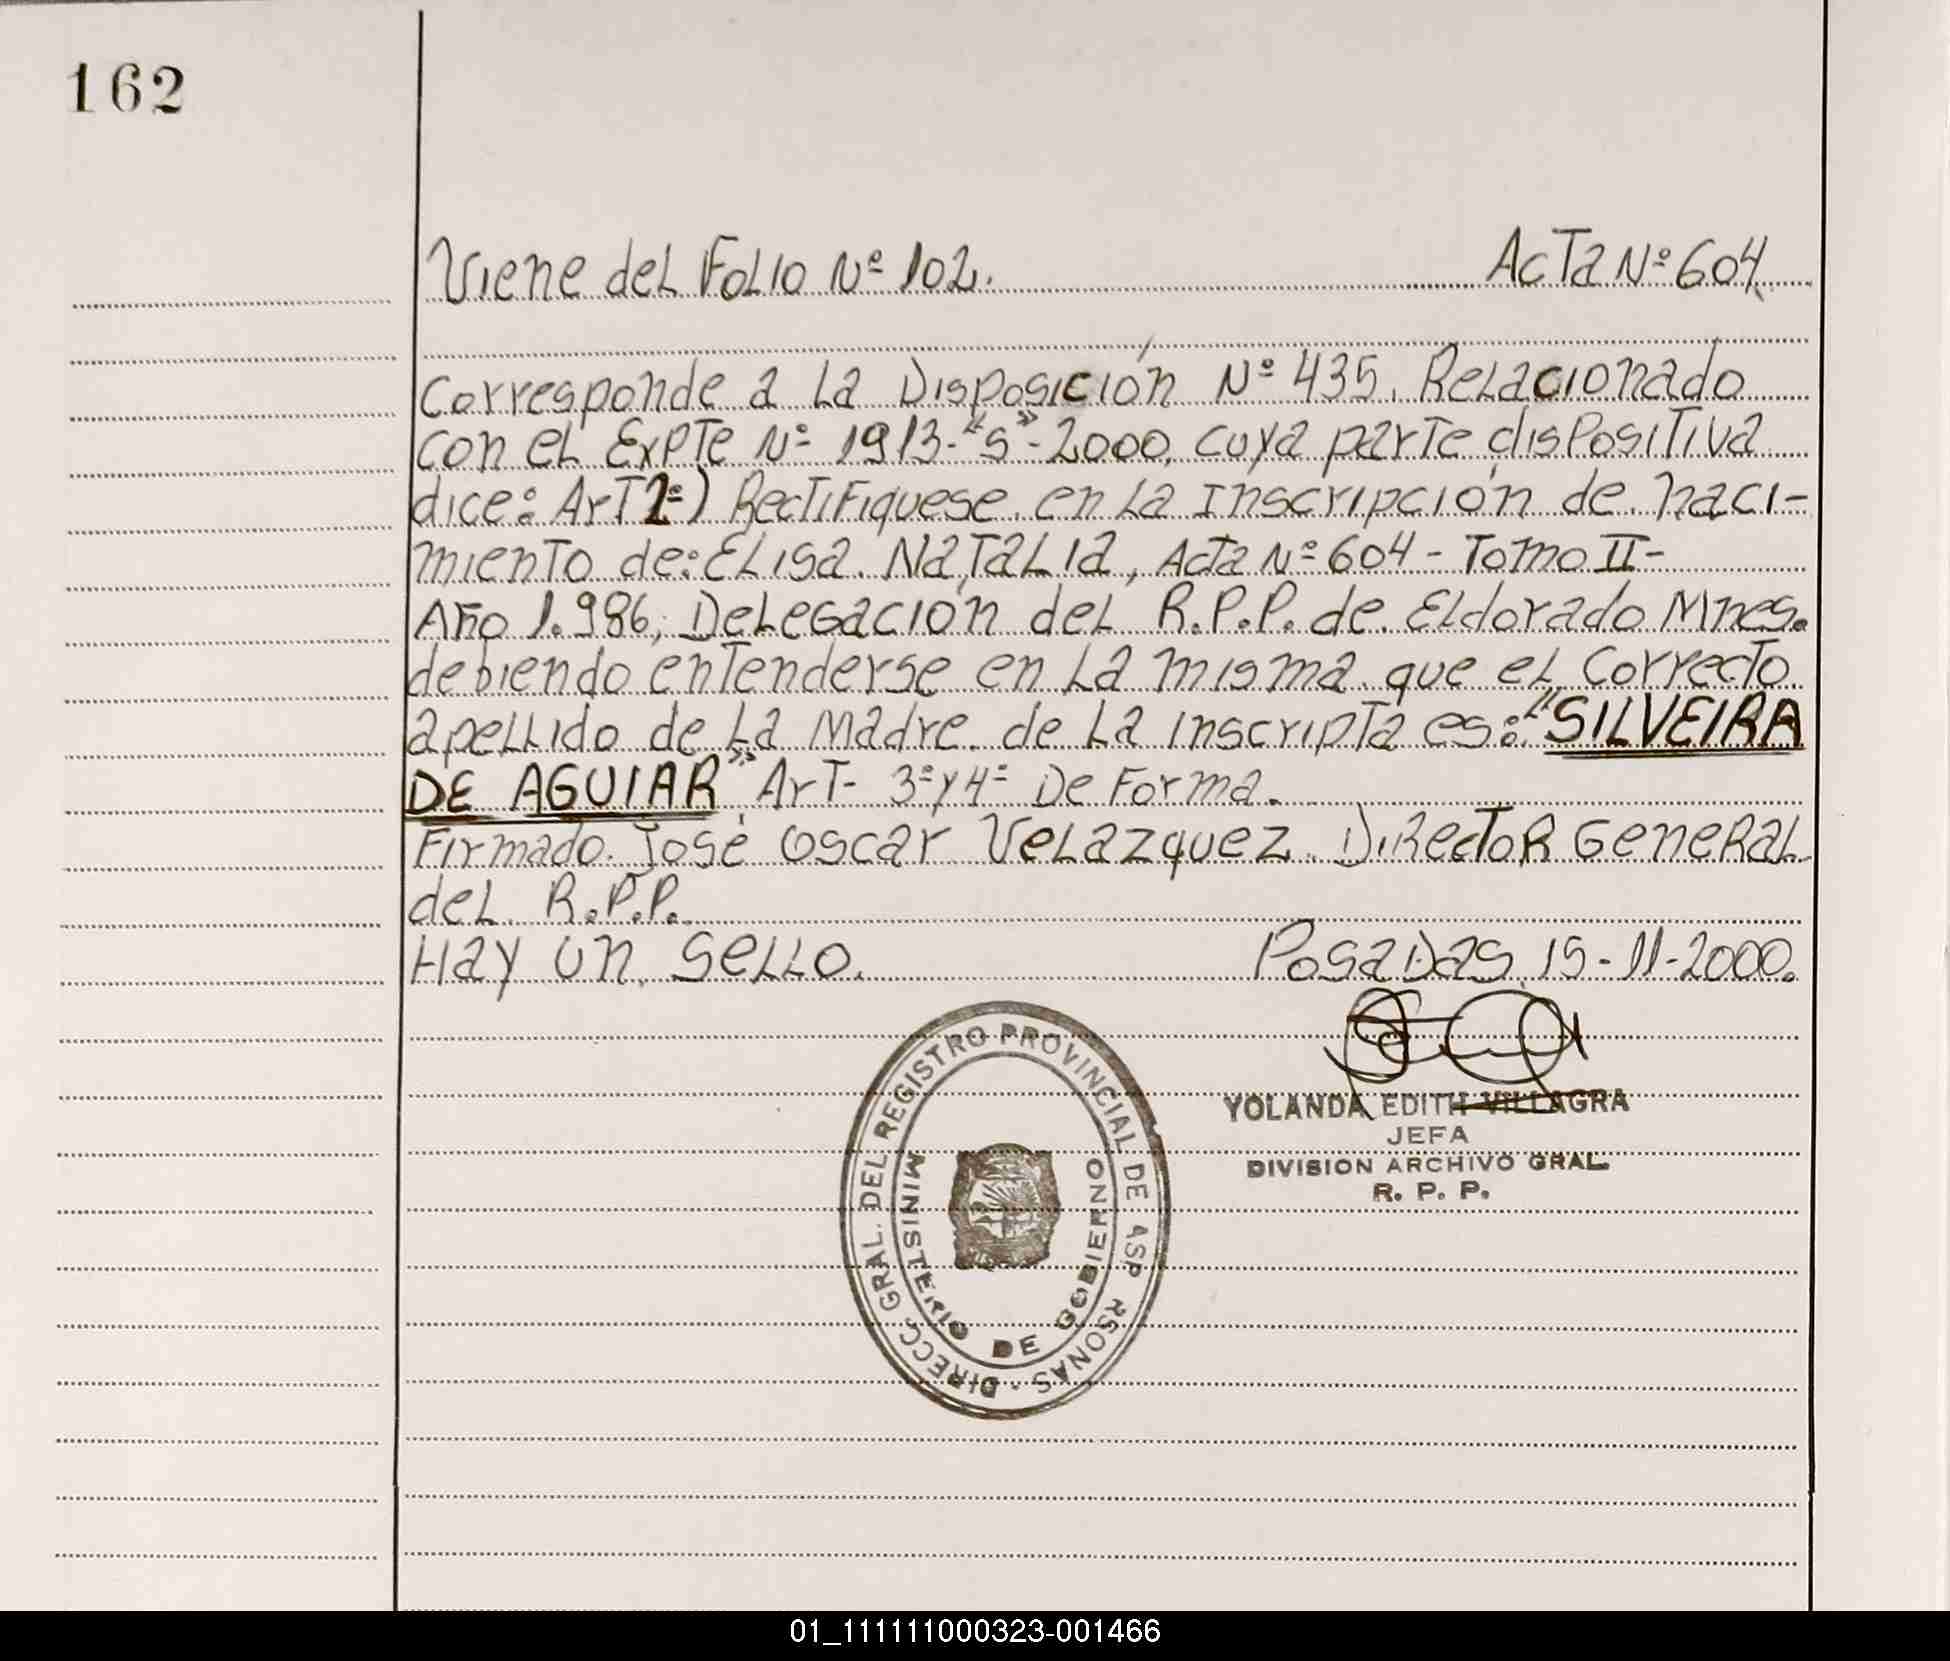 162
Viene del Folio Nº 102. Acta Nº 604.
Corresponde a la Disposición Nº 435. Relacionado
con el Expte Nº 1913-"S"-2000, cuya parte dispositiva
dice: Art 1º) Rectifiquese en la Inscripción de naci-
miento de: Elisa Natalia, Acta Nº 604 - Tomo II -
Año 1.986, Delegación del R.P.P. de Eldorado Mnes.
debiendo entenderse en la misma que el correcto
apellido de la Madre de la inscripta es: "SILVEIRA
DE AGUIAR" Art- 3º y 4º De Forma.
Firmado José Oscar Velazquez. Director General
del R.P.P.
Hay un sello. Posadas, 15-11-2000.
YOLANDA EDITH VILLAGRA
JEFA
DIVISION ARCHIVO GRAL.
R. P. P.
DIRECC. GRAL. DEL REGISTRO PROVINCIAL DE ASP RSONAS -
MINISTERIO DE GOBIERNO
01_111111000323-001466